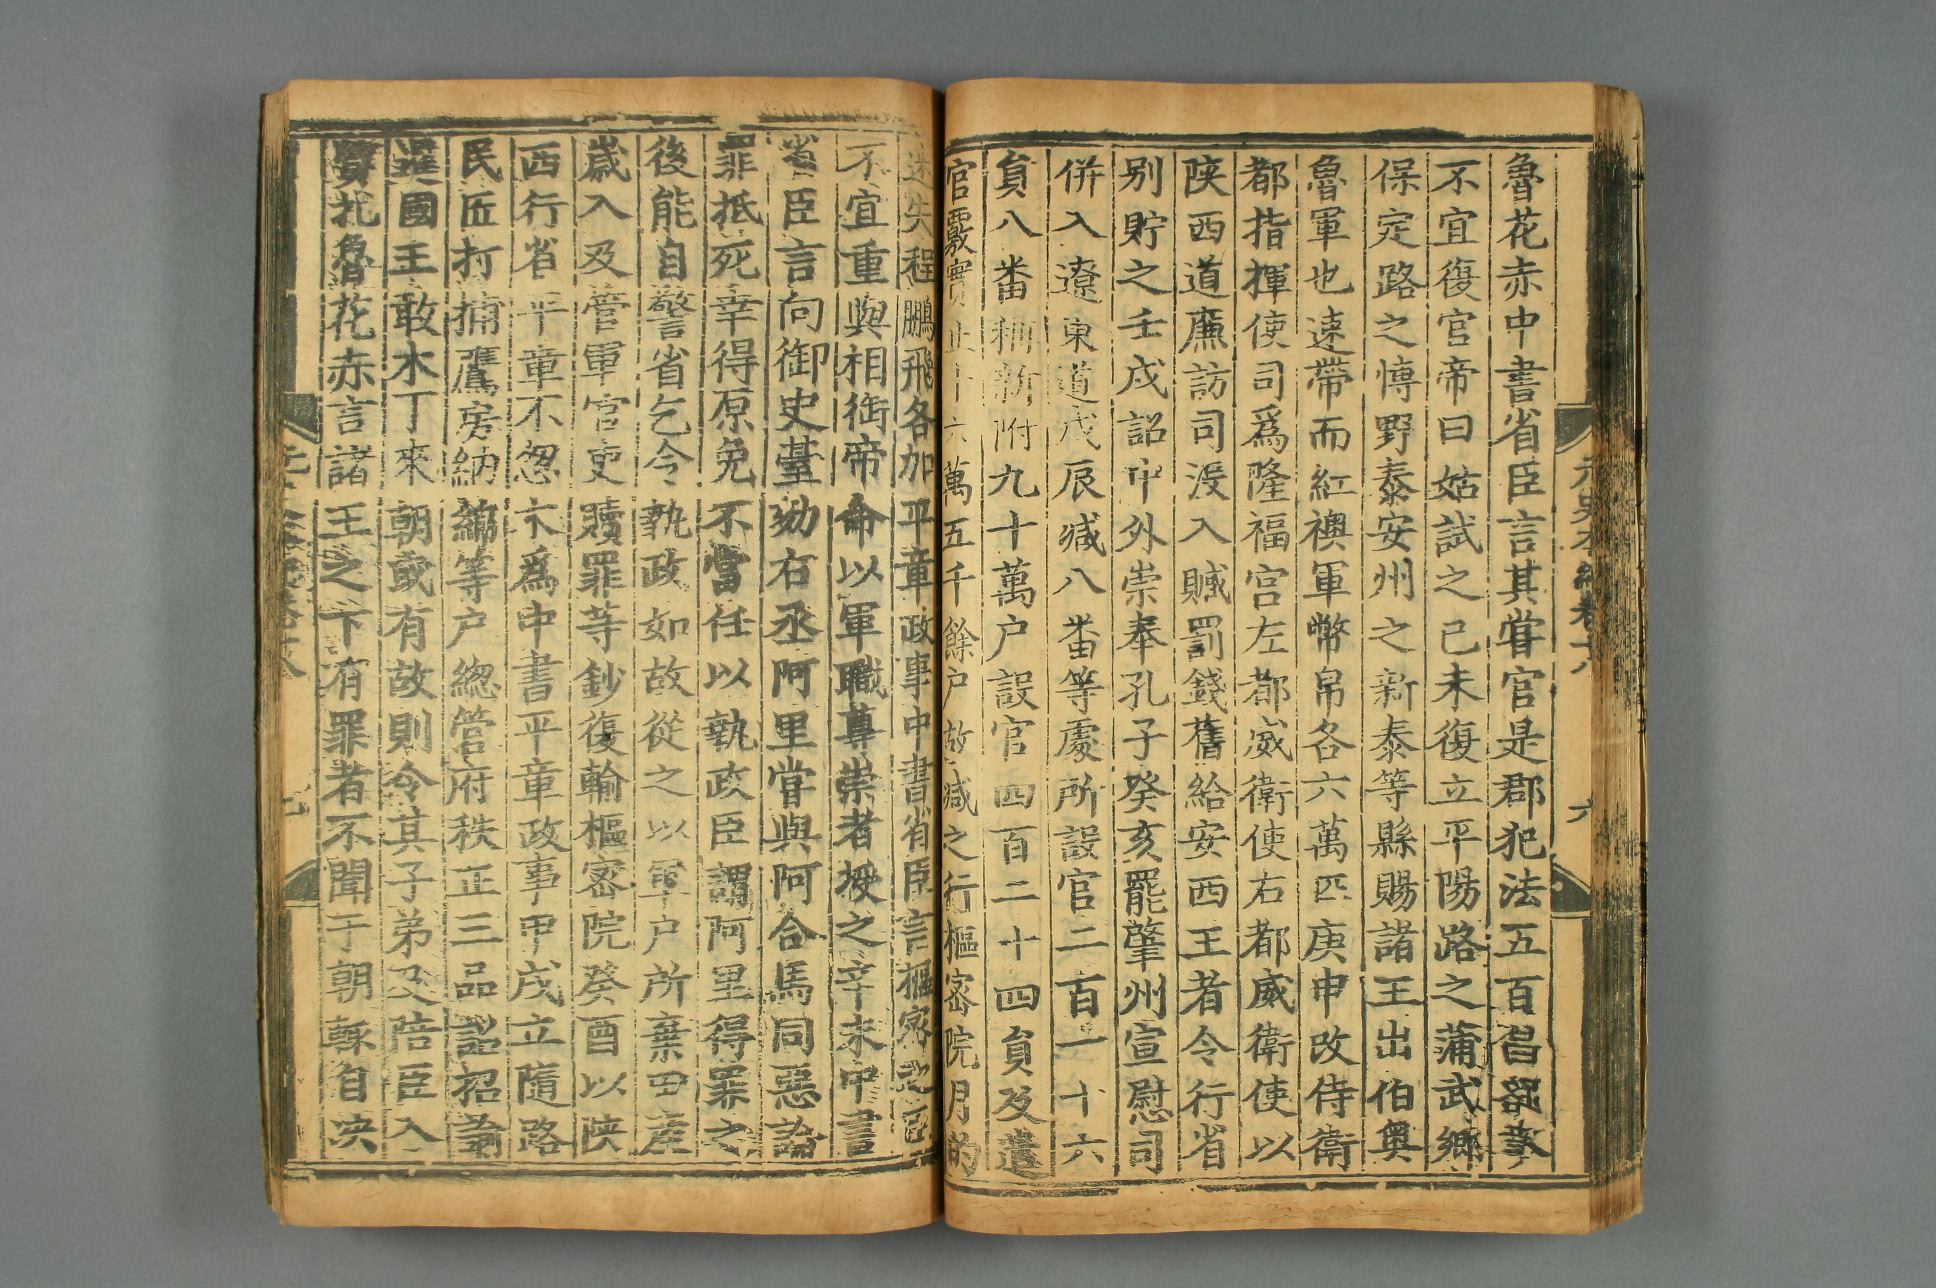 魯花赤中書省臣言其甞官是郡犯法五百
不宜復官帝曰姑試之己未復立平陽路之蒲武鄉
保定路之博野泰安州之新泰等縣賜諸王出伯奧
魯軍也速帶而紅襖軍幣帛各六萬匹庚申改侍衛
都指揮使司爲隆福宮左都威衛使右都威衛使以
陝西道廉訪司没入贓罰錢舊給安西王者令行省
别貯之壬戌詔中外崇奉孔子癸亥罷肇州宣慰司
併入遼東道戊辰減八番等處所設官二百一十六
員八番稱新附九十萬户設官四百二十四員及遣
官覈實止十六萬五千餘户故減之行樞密院月的
迷失程鵬飛各加平章政事中書省臣言樞密之臣
不宜重與相銜帝命以軍職尊崇者授之辛未中書
省臣言向御史臺劾右丞阿里甞與阿合馬同惡論
罪抵死幸得原免不當任以執政臣謂阿里得罪之
後能自警省乞令執政如故從之以軍户所棄田産
嵗入及管軍官吏贖罪等鈔復輸樞密院癸酉以陝
西行省平章不忽木爲中書平章政事甲戌立隨路
民匠打捕鷹房納綿等户總管府秩正三品詔招
國王敢木丁來朝或有故則令其子弟及陪臣入
質扎魯花赤言諸王之下有罪者不聞于朝輒自决
元史本紀卷十八
六